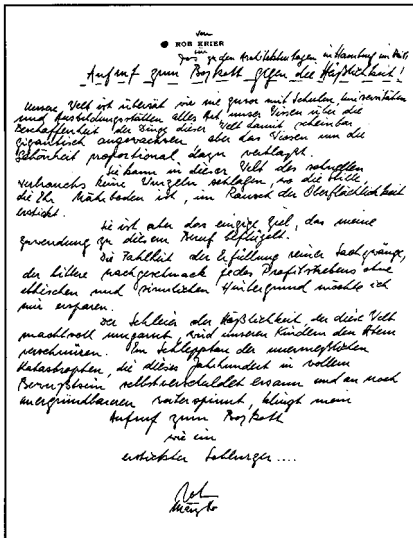 von
ROB KRIER
ein
das zu den Architektentagen in Hamburg im
Aufruf zum Boykott gegen die Häßlichkeit!
Unsere Welt ist übersät wie nie zuvor mit Schulen, Universitäten
und Ausbildungsstätten aller Art, unser Wissen über die
Beschaffenheit der Dinge dieser Welt damit scheinbar
gigantisch angewachsen, aber das Wissen um die
Schönheit proportional dazu verblaßt.
Sie kann in dieser Welt des schnellen
Verbrauchs keine Wurzeln schlagen, wo die Stille,
die ihr Nährboden ist, im Rausch der Oberflächlichkeit
erstickt.
Sie ist aber das einzige Ziel, das meine
Zuwendung zu diesem Beruf beflügelt.
Die Fahlheit der Erfüllung reiner Sachzwänge,
der bittere Nachgeschmack jedes Profitstrebens ohne
ethischen und sinnlichen Hintergrund möchte ich
mir ersparen.
Der Schleier der Häßlichkeit der diese Welt
machtvoll umgarnt, wird unseren Kindern den Atem
verschnüren. Im Schlepptau der unermeßlichen
Katastrophen, die dieses Jahrhundert in vollem
Bewußtsein selbstverschuldet ersann und an noch
unergründbareren weiterspinnt, klingt mein
Aufruf zum Boykott
wie ein
erstickter Schluchzer....
Rob